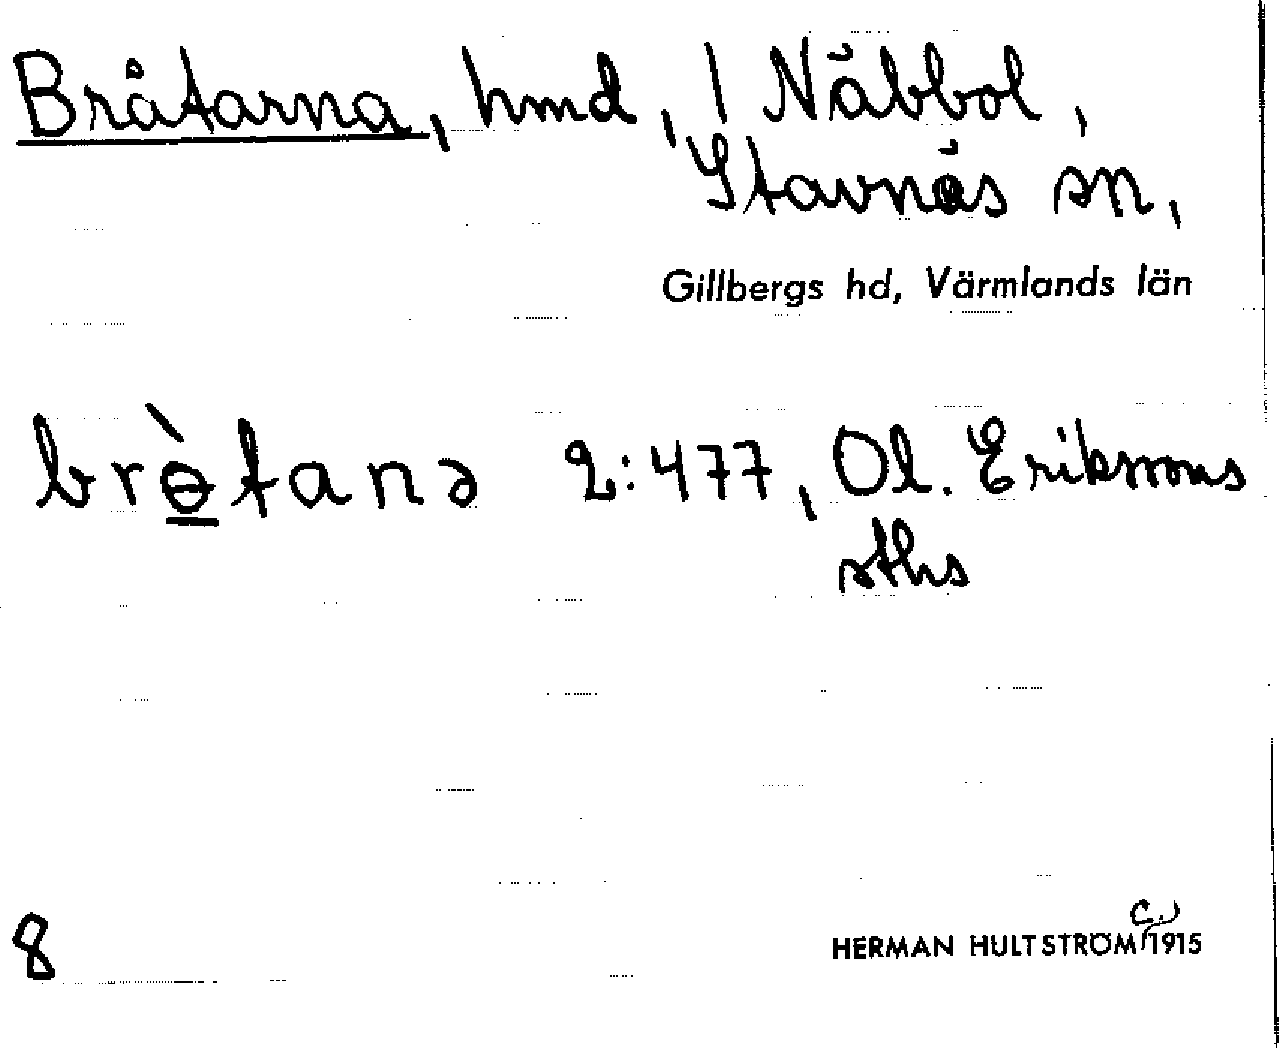 Bråtarna, hmd, 1 Näbbol,
Stavnäs sn,
Gillbergs hd, Värmlands län
brɵ̀tanə 2:477, Ol. Erikssons
sths
8
c.
HERMAN HULTSTRÖM 1915